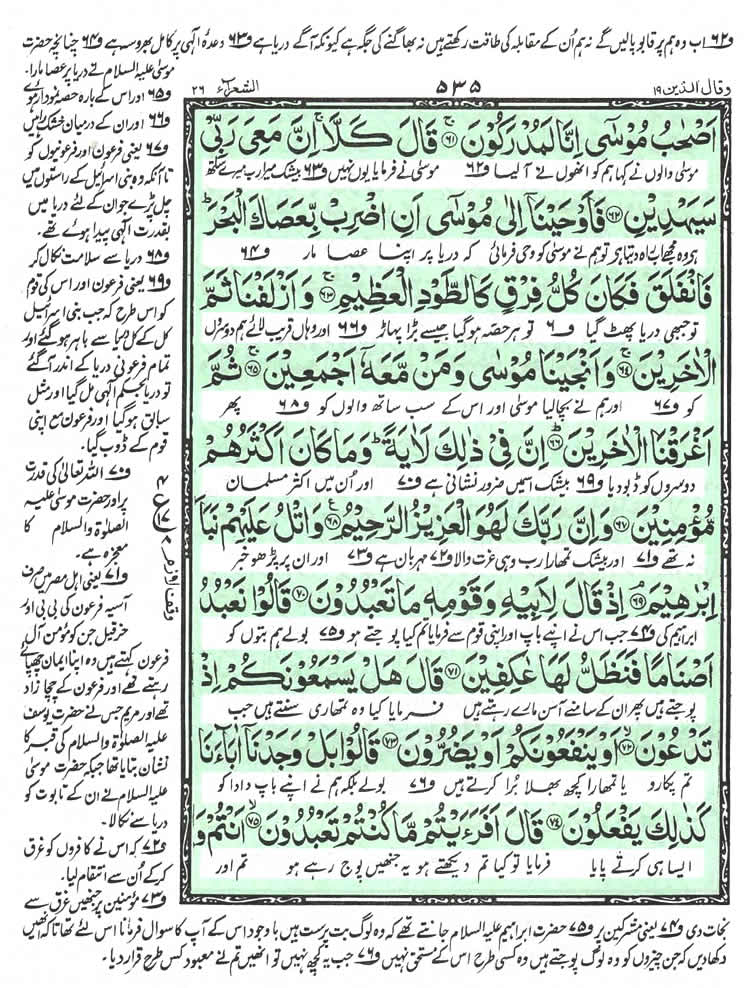 و۶۲ اب وہ ہم پر قابو پالیں گے نہ ہم اُن کے مقابلہ کی طاقت رکھتے ہیں نہ بھاگنے کی جگہ ہے کیونکہ آگے دریا ہے و۶۳ وعدۂ الٰہی پر کامل بھروسہ ہے و۶۴ چنانچہ حضرت
موسٰی علیہ السلام نے دریا پر عصا مارا۔
و۶۵ اور اس کے بارہ حصے نمودار ہوئے
و۶۶ اور ان کے درمیان خشک راہیں
و۶۷ یعنی فرعون اور فرعونیوں کو
تا آنکہ وہ بنی اسرائیل کے راستوں میں
چل پڑے جو ان کے لئے دریا میں
بقدرت الٰہی پیدا ہوئے تھے۔
و۶۸ دریا سے سلامت نکال کر
و۶۹ یعنی فرعون اور اس کی قوم
کو اس طرح کہ جب بنی اسرائیل
کل کے کل دریا سے باہر ہو گئے اور
تمام فرعونی دریا کے اندر آ گئے
تو دریا بحکم الٰہی مل گیا اور مثل
سابق ہو گیا اور فرعون مع اپنی
قوم کے ڈوب گیا۔
و۷۰ اللہ تعالیٰ کی قدرت
پر اور حضرت موسیٰ علیہ
الصلوٰۃ والسلام کا
معجزہ ہے۔
و۷۱ یعنی اہل مصر میں صرف
آسیہ فرعون کی بی بی اور
حزقیل جن کو مؤمن آل
فرعون کہتے ہیں وہ اپنا ایمان چھپائے
رہتے تھے اور فرعون کے چچا زاد
تھے اور مریم جس نے حضرت یوسف
علیہ الصلوٰۃ والسلام کی قبر کا
نشان بتایا تھا جبکہ حضرت موسیٰ
علیہ السلام نے ان کے تابوت کو
دریا سے نکالا۔
و۷۲ کہ اس نے کافروں کو غرق
کر کے اُن سے انتقام لیا۔
و۷۳ مؤمنین پر جنہیں غرق سے
وقال الذین ۱۹
۵۳۵
الشعراء ۲۶
اَصْحٰبُ مُوْسٰۤى اِنَّا لَمُدْرَكُوْنَ ﴿۶۱﴾ قَالَ كَلَّا اِنَّ مَعِیَ رَبِّیْ
موسٰی والوں نے کہا ہم کو انھوں نے آ لیا و۶۲ موسٰی نے فرمایا یوں نہیں و۶۳ بیشک میرا رب میرے ساتھ
سَیَهْدِیْنِ ﴿۶۲﴾ فَاَوْحَیْنَاۤ اِلٰى مُوْسٰۤى اَنِ اضْرِبْ بِّعَصَاكَ الْبَحْرَ
ہے وہ مجھے اب راہ دیتا ہے تو ہم نے موسٰی کو وحی فرمائی کہ دریا پر اپنا عصا مار و۶۴
فَانْفَلَقَ فَكَانَ كُلُّ فِرْقٍ كَالطَّوْدِ الْعَظِیْمِ ﴿۶۳﴾ وَ اَزْلَفْنَا ثَمَّ
تو جبھی دریا پھٹ گیا و۶ تو ہر حصہ ہو گیا جیسے بڑا پہاڑ و۶۶ اور وہاں قریب لائے ہم دوسروں
الْاٰخَرِیْنَ ﴿۶۴﴾ وَ اَنْجَیْنَا مُوْسٰى وَ مَنْ مَّعَهٗۤ اَجْمَعِیْنَ ﴿۶۵﴾ ثُمَّ
کو و۶۷ اور ہم نے بچا لیا موسٰی اور اس کے سب ساتھ والوں کو و۶۸ پھر
اَغْرَقْنَا الْاٰخَرِیْنَ ﴿۶۶﴾ اِنَّ فِیْ ذٰلِكَ لَاٰیَةً وَ مَا كَانَ اَكْثَرُهُمْ
دوسروں کو ڈبو دیا و۶۹ بیشک اس میں ضرور نشانی ہے و۷۰ اور اُن میں اکثر مسلمان
مُّؤْمِنِیْنَ ﴿۶۷﴾ وَ اِنَّ رَبَّكَ لَهُوَ الْعَزِیْزُ الرَّحِیْمُ ﴿۶۸﴾ وَ اتْلُ عَلَیْهِمْ نَبَاَ
نہ تھے و۷۱ اور بیشک تمہارا رب وہی عزت والا و۷۲ مہربان ہے و۷۳ اور ان پر پڑھو خبر
اِبْرٰهِیْمَ ﴿۶۹﴾ اِذْ قَالَ لِاَبِیْهِ وَ قَوْمِهٖ مَا تَعْبُدُوْنَ ﴿۷۰﴾ قَالُوْا نَعْبُدُ
ابراہیم کی و۷۴ جب اس نے اپنے باپ اور اپنی قوم سے فرمایا تم کیا پوجتے ہو و۷۵ بولے ہم بتوں کو
اَصْنَامًا فَنَظَلُّ لَهَا عٰكِفِیْنَ ﴿۷۱﴾ قَالَ هَلْ یَسْمَعُوْنَكُمْ اِذْ
پوجتے ہیں پھر ان کے سامنے آسن مارے رہتے ہیں فرمایا کیا وہ تمھاری سنتے ہیں جب
تَدْعُوْنَ ﴿۷۲﴾ اَوْ یَنْفَعُوْنَكُمْ اَوْ یَضُرُّوْنَ ﴿۷۳﴾ قَالُوْا بَلْ وَجَدْنَاۤ اٰبَآءَنَا
تم پکارو یا تمھارا کچھ بھلا برا کرتے ہیں و۷۶ بولے بلکہ ہم نے اپنے باپ دادا کو
كَذٰلِكَ یَفْعَلُوْنَ ﴿۷۴﴾ قَالَ اَفَرَءَیْتُمْ مَّا كُنْتُمْ تَعْبُدُوْنَ ﴿۷۵﴾ اَنْتُمْ وَ
ایسا ہی کرتے پایا فرمایا تو کیا تم دیکھتے ہو یہ جنھیں پوج رہے ہو تم اور
نجات دی و۷۴ یعنی مشرکین پر و۷۵ حضرت ابراہیم علیہ السلام جانتے تھے کہ وہ لوگ بت پرست ہیں باوجود اس کے آپ کا سوال فرمانا اس لئے تھا تاکہ انھیں
دکھا دیں کہ جن چیزوں کو وہ لوگ پوجتے ہیں وہ کسی طرح اس کے مستحق نہیں و۷۶ جب یہ کچھ نہیں تو انھیں تم نے معبود کس طرح قرار دیا۔